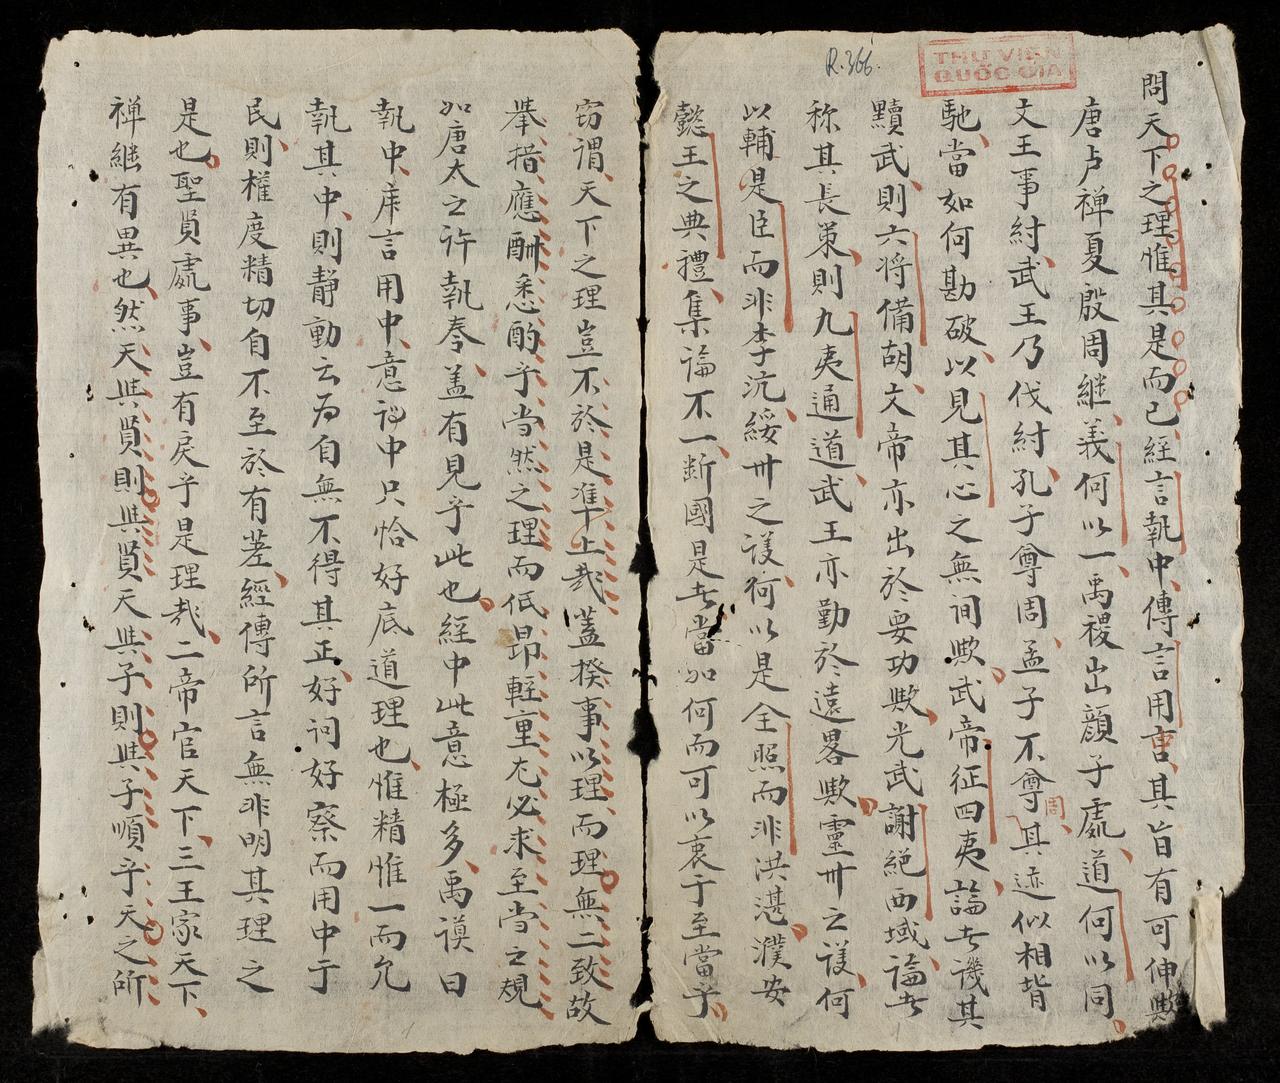 R.366.
THƯ VIỆN
QUỐC GIA
問天下之理惟其是而已經言執中傳言用中其旨有可伸歟
唐虞禅夏殷周継義何以一禹稷出顔子處道何以同
文王事紂武王乃伐紂孔子尊周孟子不尊周其迹似相背
馳當如何勘破以見其心之無间歟武帝征四夷論者譏其
黷武則六将備胡文帝亦出於要功歟光武謝絶西域論者
称其長策則九夷通道武王亦勤於遠畧歟靈卅之議何
以輔是臣而非李沆綏卅之議何以是全照而非洪湛濮安
懿王之典禮集論不一断國是者當如何而可以衷于至當乎
窃谓天下之理豈不於是準上哉蓋揆事以理而理無二致故
举措應酬悉酌乎当然之理而低昂輕重尤必求至当之規
如唐太之许執奏盖有見乎此也經中此意極多禹谟曰
執中庠言用中意祕中只恰好底道理也惟精惟一而允
執其中則静動云为自無不得其正好问好察而用中于
民則權度精切自不至於有差經傳所言無非明其理之
是也聖贤處事豈有戾乎是理哉二帝官天下三王家天下
禅継有異也然天與贤則與贤天與子則與子順乎天之所